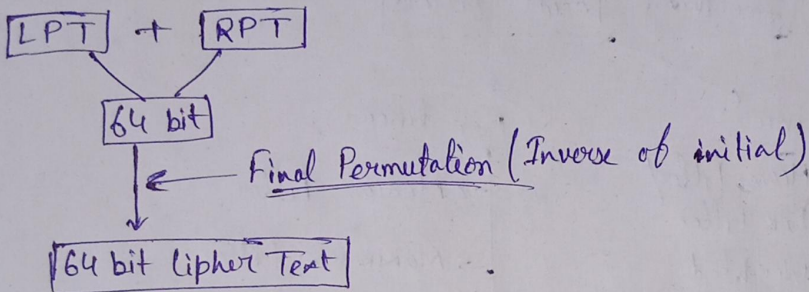 LPT + RPT
64 bit
Final Permutation (Inverse of initial)
64 bit Cipher Text